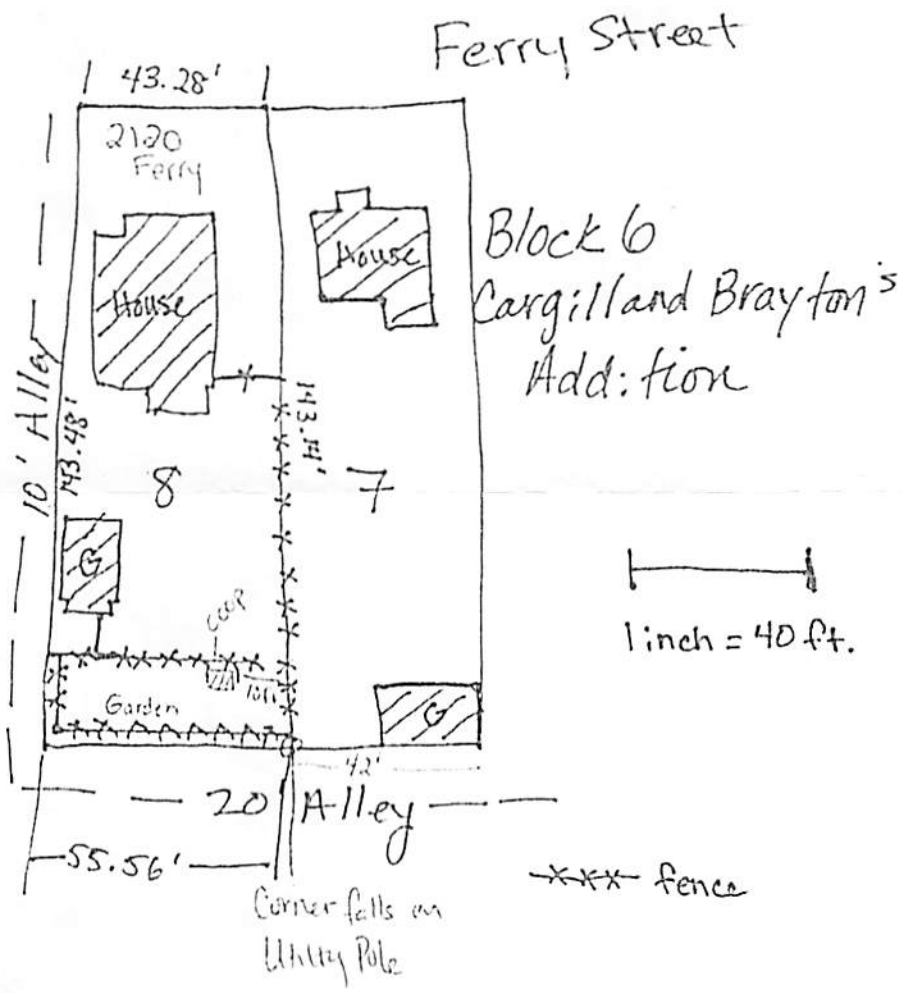 Ferry Street
43.28'
2120
Ferry
House
House
Block 6
Cargill and Brayton's
Addition
10' Alley
143.48'
143.14'
8
7
G
COOP
1 inch = 40 ft.
10ft
Garden
G
42'
20' Alley
55.56'
fence
Corner falls on
Utility Pole